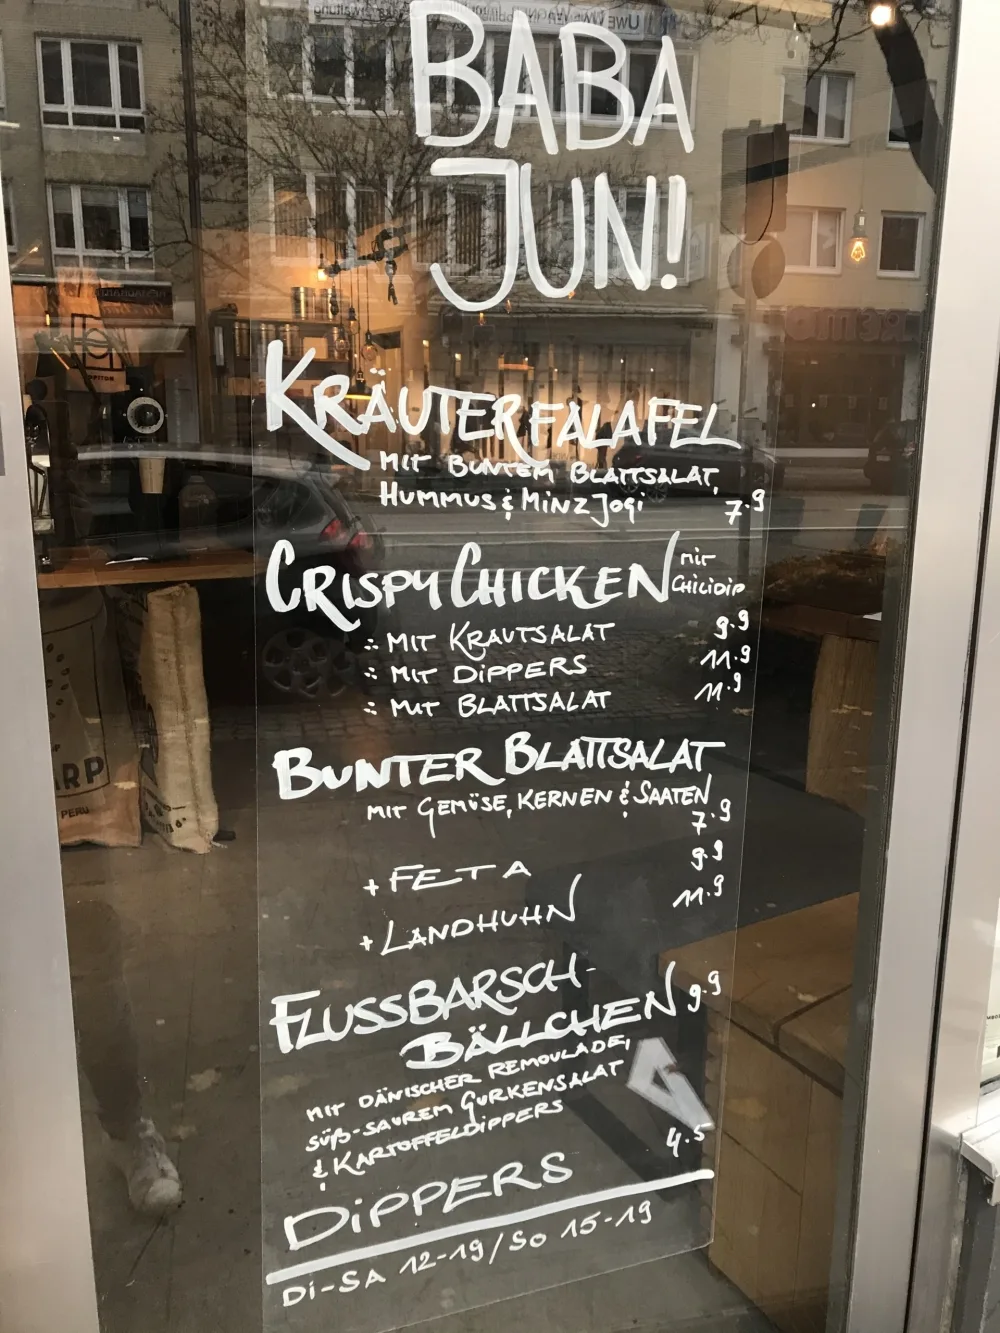 BABA
JUN!
KRÄUTERFALAFEL
MIT BUNTEM BLATTSALAT,
HUMMUS & MINZJOGI 7.9
CRISPY CHICKEN MIT
CHILIDIP
∴ MIT KRAUTSALAT 9.9
∴ MIT DIPPERS 11.9
∴ MIT BLATTSALAT 11.9
BUNTER BLATTSALAT
MIT GEMÜSE, KERNEN & SAATEN
7.9
+ FETA 9.9
+ LANDHUHN 11.9
FLUSSBARSCH-
BÄLLCHEN 9.9
MIT DÄNISCHER REMOULADE,
SÜß-SAUREM GURKENSALAT
& KARTOFFELDIPPERS
DIPPERS 4.5
DI-SA 12-19/SO 15-19
ARP
PERU